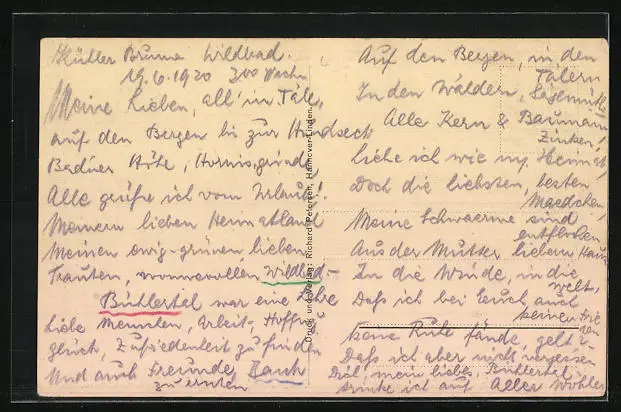 Müller Brunne Wildbad.
19.6.1920
Meine Lieben, all' im Tale,
auf den Bergen bis zur Hundseck
Badner Höhe, Hornisgrinde
Alle grüße ich vom Urlaub!
Meinem lieben Heimatland
Meinen ewig-grünen, lieben
Trauten, wonnevollen Wildbad -
Bühlertal war eine Lehre
Liebe Menschen, Arbeit,
glück, Zufriedenheit zu finden
Und auch Freunde, Dank
zu ernten
Auf den Bergen, in den
Tälern
In den Wäldern,
Alle Kern & Baumann
Zinken,
liebe ich wie my Heimat,
Doch die liebsten, besten
Maedchen,
Meine Schwaerme sind
entflohen
Aus der Mutter liebem Haus
In die Winde, in die
Welt,
Daß ich bei Euch auch
keinen
keine Ruhe fände, gelt
Daß ich aber nicht vergessen
Dich, mein liebes Bühlertal
trinke ich auf Aller Wohl
Druck und Verlag: Richard Petersen, Hannover-Linden.